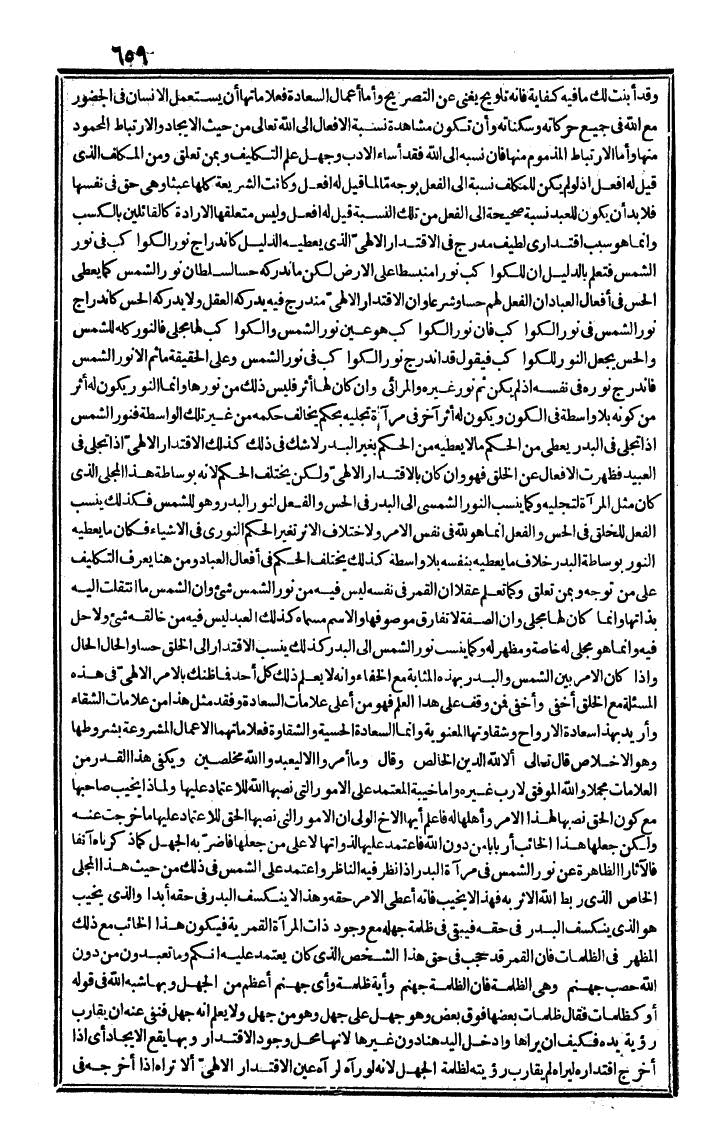 ٦٥٩
وقد أبنت لك ما فيه كفاية فانه تلويح يغنى عن التصريح وأما أعمال السعادة فعلاماتها أن يستعمل الانسان فى الحضور
مع الله فى جميع حركاته وسكناته وأن تكون مشاهدة نسبة الافعال الى الله تعالى من حيث الايجاد والارتباط المحمود
منها وأما الارتباط المذموم منها فان نسبه الى الله فقد أساء الادب وجهل علم التكليف وبمن تعلق ومن المكلف الذى
قيل له افعل اذ لو لم يكن للمكلف نسبة الى الفعل بوجه مّا لما قيل له افعل وكانت الشريعة كلها عبثا وهى حق فى نفسها
فلا بد أن يكون للعبد نسبة صحيحة الى الفعل من تلك النسبة قيل له افعل وليس متعلقها الارادة كالقائلين بالكسب
وانما هو سبب اقتدارى لطيف مدرج فى الاقتدار الالهىّ الذى يعطيه الدليل كاندراج نور الكواكب فى نور
الشمس فتعلم بالدليل ان للكواكب نورا منبسطا على الارض لكن ما ندركه حسا لسلطان نور الشمس كما يعطى
الحس فى أفعال العباد ان الفعل لهم حسا وشرعا وان الاقتدار الالهىّ مندرج فيه يدركه العقل ولا يدركه الحس كاندراج
نور الشمس فى نور الكواكب فان نور الكواكب هو عين نور الشمس والكواكب لها مجلى فالنور كله للشمس
والحس يجعل النور للكواكب فيقول قد اندرج نور الكواكب فى نور الشمس وعلى الحقيقة ما ثم الا نور الشمس
فاندرج نوره فى نفسه اذ لم يكن ثم نور غيره والمرائى وان كان لها أثر فليس ذلك من نورها وانما النور يكون له أثر
من كونه بلا واسطة فى الكون ويكون له أثر آخر فى مرآة تجليه بحكم يخالف حكمه من غير تلك الواسطة فنور الشمس
اذا تجلى فى البدر يعطى من الحكم ما لا يعطيه من الحكم بغير البدر لا شك فى ذلك كذلك الاقتدار الالهىّ اذا تجلى فى
العبيد فظهرت الافعال عن الخلق فهو وان كان بالاقتدار الالهىّ ولكن يختلف الحكم لانه بوساطة هذا المجلى الذى
كان مثل المرآة لتجليه وكما ينسب النور الشمسى الى البدر فى الحس والفعل لنور البدر وهو للشمس فكذلك ينسب
الفعل للخلق فى الحس والفعل انما هو لله فى نفس الامر ولاختلاف الاثر تغير الحكم النورى فى الاشياء فكان ما يعطيه
النور بوساطة البدر خلاف ما يعطيه بنفسه بلا واسطة كذلك يختلف الحكم فى أفعال العباد ومن هنا يعرف التكليف
على من توجه وبمن تعلق وكما تعلم عقلا ان القمر فى نفسه ليس فيه من نور الشمس شئ وان الشمس ما انتقلت اليه
بذاتها وانما كان لها مجلى وان الصفة لا تفارق موصوفها والاسم مسماه كذلك العبد ليس فيه من خالقه شئ ولا حل
فيه وانما هو مجلى له خاصة ومظهر له وكما ينسب نور الشمس الى البدر كذلك ينسب الاقتدار الى الخلق حسا والحال الحال
واذا كان الامر بين الشمس والبدر بهذه المثابة مع الخفاء وانه لا يعلم ذلك كل أحد فما ظنك بالامر الالهىّ فى هذه
المسئلة مع الخلق أخفى وأخفى فمن وقف على هذا العلم فهو من أعلى علامات السعادة وفقد مثل هذا من علامات الشقاء
وأريد بهذا سعادة الارواح وشقاوتها المعنوية وانما السعادة الحسية والشقاوة فعلاماتهما الاعمال المشروعة بشروطها
وهو الاخلاص قال تعالى ألا لله الدين الخالص وقال وما أمروا الا ليعبدوا الله مخلصين ويكفى هذا القدر من
العلامات مجملا والله الموفق لا رب غيره واما خيبة المعتمد على الامور التى نصبها الله للاعتماد عليها ولماذا يخيب صاحبها
مع كون الحق نصبها لهذا الامر وأهلها له فاعلم أيها الاخ الولى ان الامور التى نصبها الحق للاعتماد عليها ما خرجت عنه
ولكن جعلها هذا الخائب أربابا من دون الله فاعتمد عليها لذواتها لا على من جعلها فاضرّ به الجهل كما ذكرناه آنفا
فالآثار الظاهرة عن نور الشمس فى مرآة البدر اذا نظر فيه الناظر واعتمد على الشمس فى ذلك من حيث هذا المجلى
الخاص الذى ربط الله الاثر به فهذا لا يخيب فانه أعطى الامر حقه وهذا لا ينكسف البدر فى حقه أبدا والذى يخيب
هو الذى ينكسف البدر فى حقه فيبقى فى ظلمة جهله مع وجود ذات المرآة القمرية فيكون هذا الخائب مع ذلك
المظهر فى الظلمات فان القمر قد حجب فى حق هذا الشخص الذى كان يعتمد عليه انكم وما تعبدون من دون
الله حصب جهنم وهى الظلمة فان الظلمة جهنم وأية ظلمة وأى جهنم أعظم من الجهل وبها شبه الله فى قوله
أو كظلمات فقال ظلمات بعضها فوق بعض وهو جهل على جهل وهو من جهل ولا يعلم انه جهل فنفى عنه ان يقارب
رؤية يده فكيف ان يراها وادخل اليد هنا دون غيرها لانها محل وجود الاقتدار وبها يقع الايجاد أى اذا
أخرج اقتداره ليراه لم يقارب رؤيته لظلمة الجهل لانه لو رآه لرآه عين الاقتدار الالهىّ ألا تراه اذا أخرجه فى